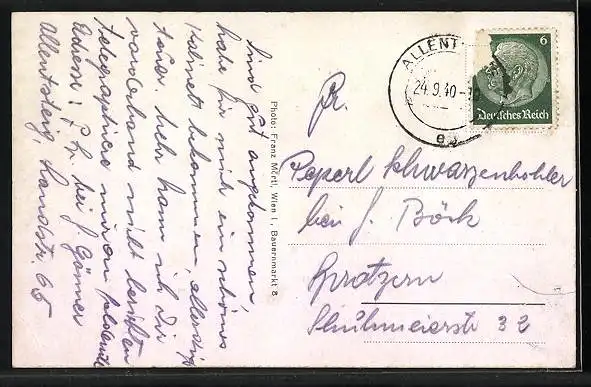 Sind gut angekommen,
habe für mich ein schönes
Kabinett bekommen, allerdings
teuer. Mehr kann ich Dir
vorderhand nicht berichten
telegraphiere mir an folgende
Adresse: P. L. bei J. Gömer
Allentsteig, Landstr. 65
Photo: Franz Mörtl, Wien I, Bauernmarkt 8
ALLENT
24.9.40
6
Deutsches Reich
Fr.
Peperl Schwarzenhohler
bei J. Böck
Spratzern
Schuhmeierstr 32